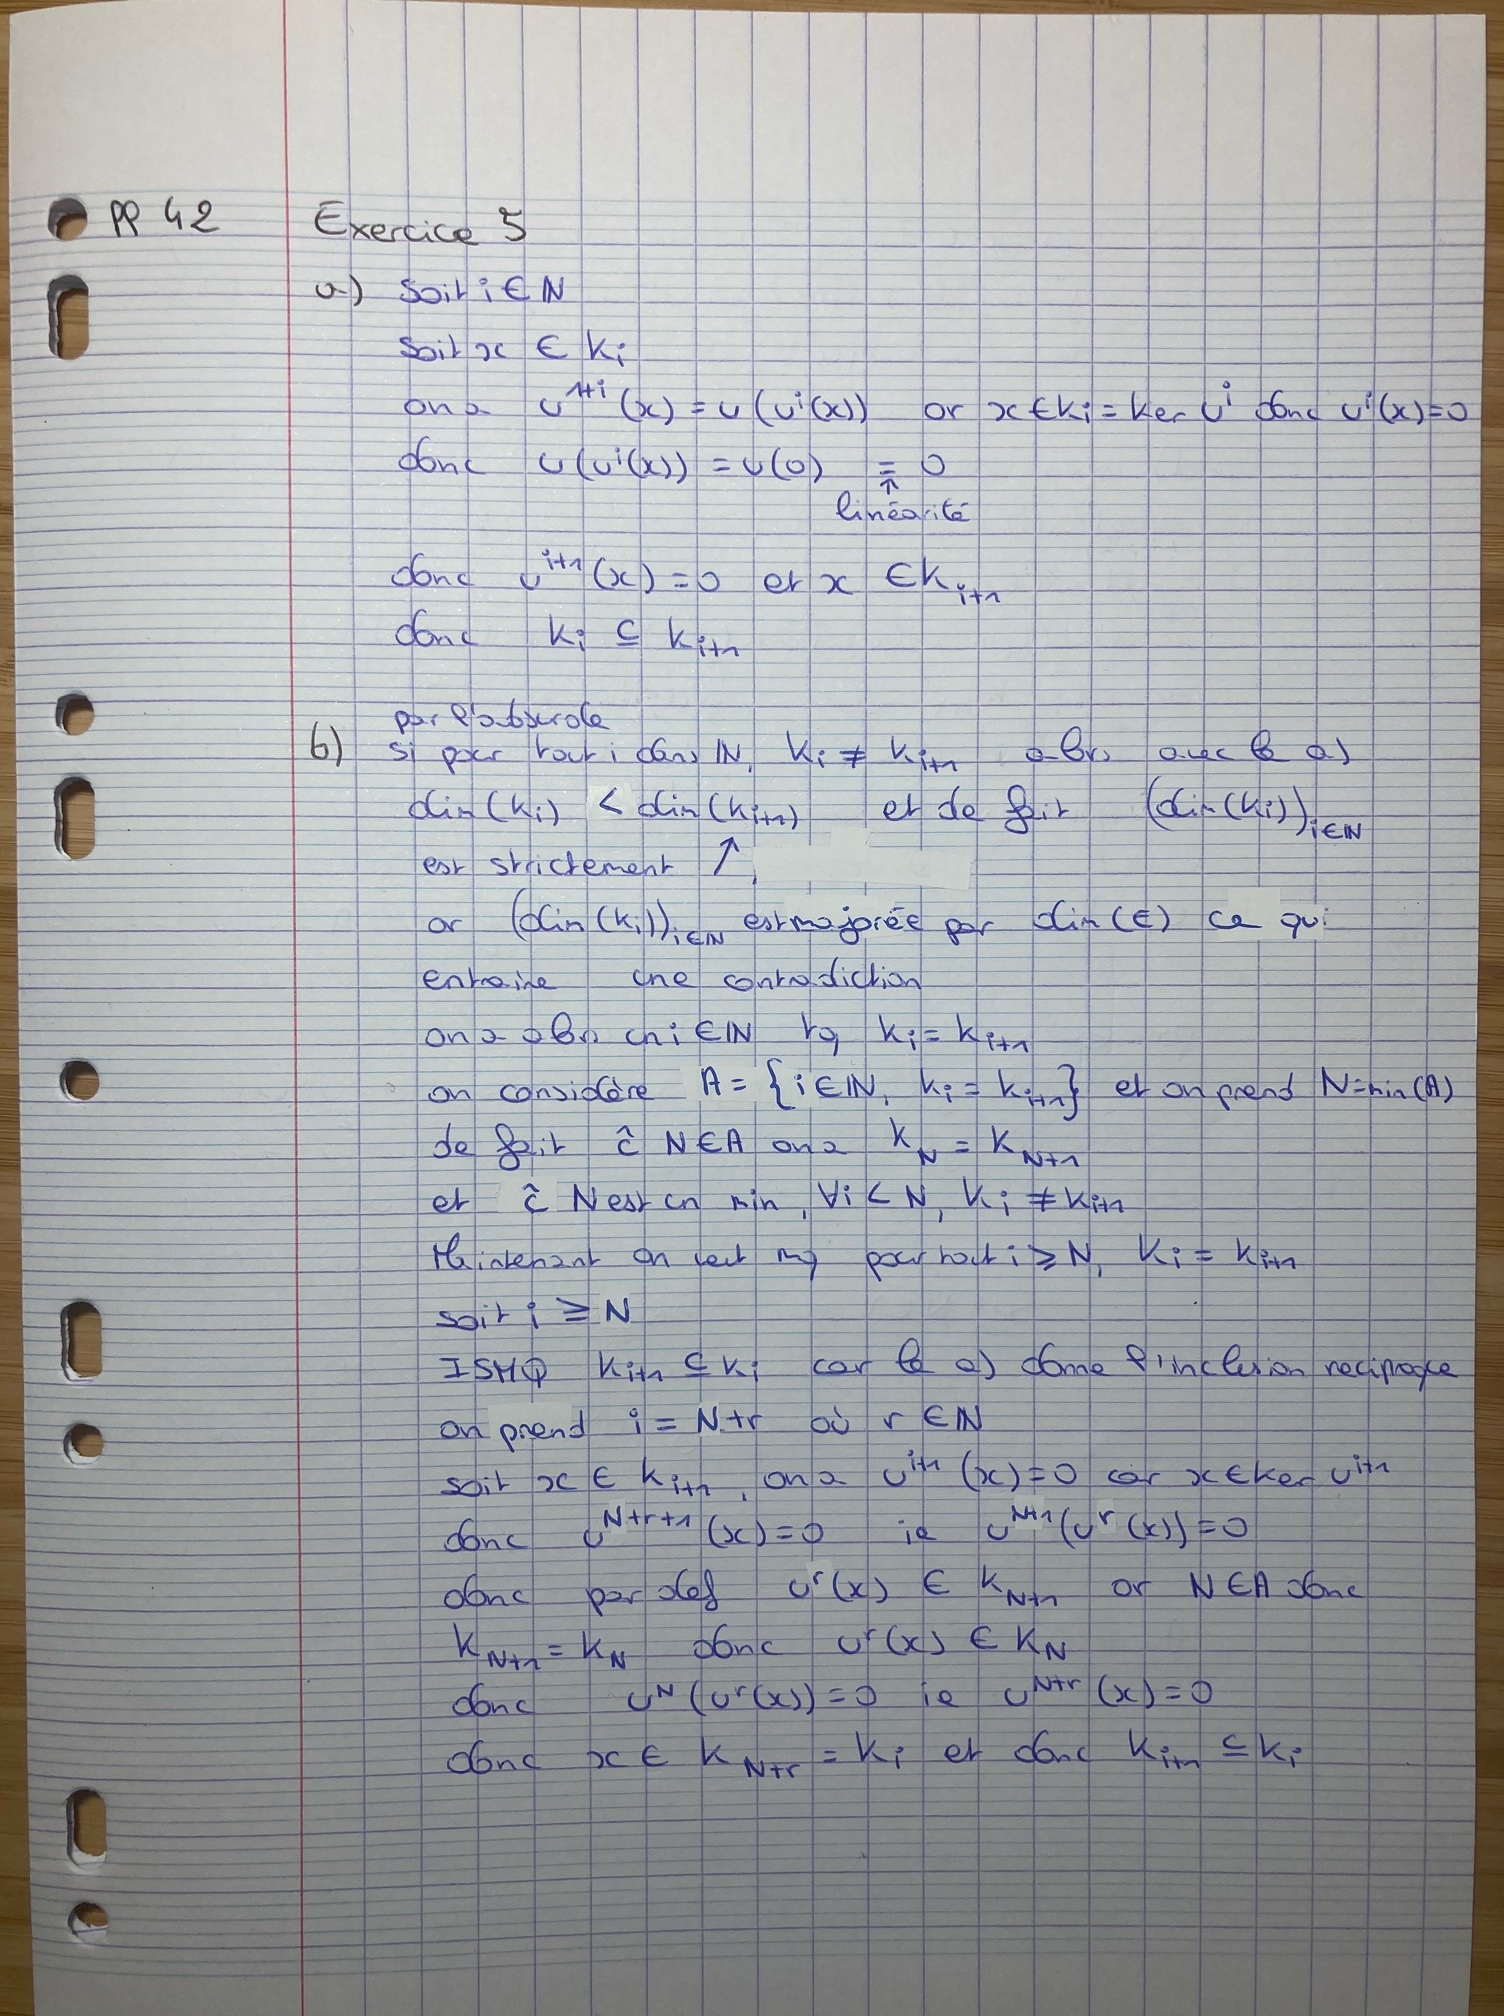 PP 42 Exercice 5
a) soit i ∈ ℕ
soit x ∈ Ki
on a u^{1+i}(x) = u(u^i(x)) or x ∈ Ki = Ker u^i donc u^i(x) = 0
donc u(u^i(x)) = u(0) = 0
↑
linéarité
donc u^{i+1}(x) = 0 et x ∈ K_{i+1}
donc Ki ⊆ K_{i+1}
par l'absurde
b) si pour tout i dans ℕ, Ki ≠ K_{i+1} alors avec le a)
dim(Ki) < dim(K_{i+1}) et de fait (dim(Ki))_{i∈ℕ}
est strictement ↑
or (dim(Ki))_{i∈ℕ} est majorée par dim(E) ce qui
entraine une contradiction
on a alors un i ∈ ℕ tq Ki = K_{i+1}
on considère A = {i ∈ ℕ, Ki = K_{i+1}} et on prend N = min(A)
de fait ĉ N ∈ A on a K_N = K_{N+1}
et ĉ N est un min, ∀i < N, Ki ≠ K_{i+1}
Maintenant on veut mq pour tout i ≥ N, Ki = K_{i+1}
soit i ≥ N
ISMQ K_{i+1} ⊆ Ki car le a) donne l'inclusion reciproque
on prend i = N+r où r ∈ ℕ
soit x ∈ K_{i+1}, on a u^{i+1}(x) = 0 car x ∈ Ker u^{i+1}
donc u^{N+r+1}(x) = 0 ie u^{N+1}(u^r(x)) = 0
donc par def u^r(x) ∈ K_{N+1} or N ∈ A donc
K_{N+1} = K_N donc u^r(x) ∈ K_N
donc u^N(u^r(x)) = 0 ie u^{N+r}(x) = 0
donc x ∈ K_{N+r} = Ki et donc K_{i+1} ⊆ Ki